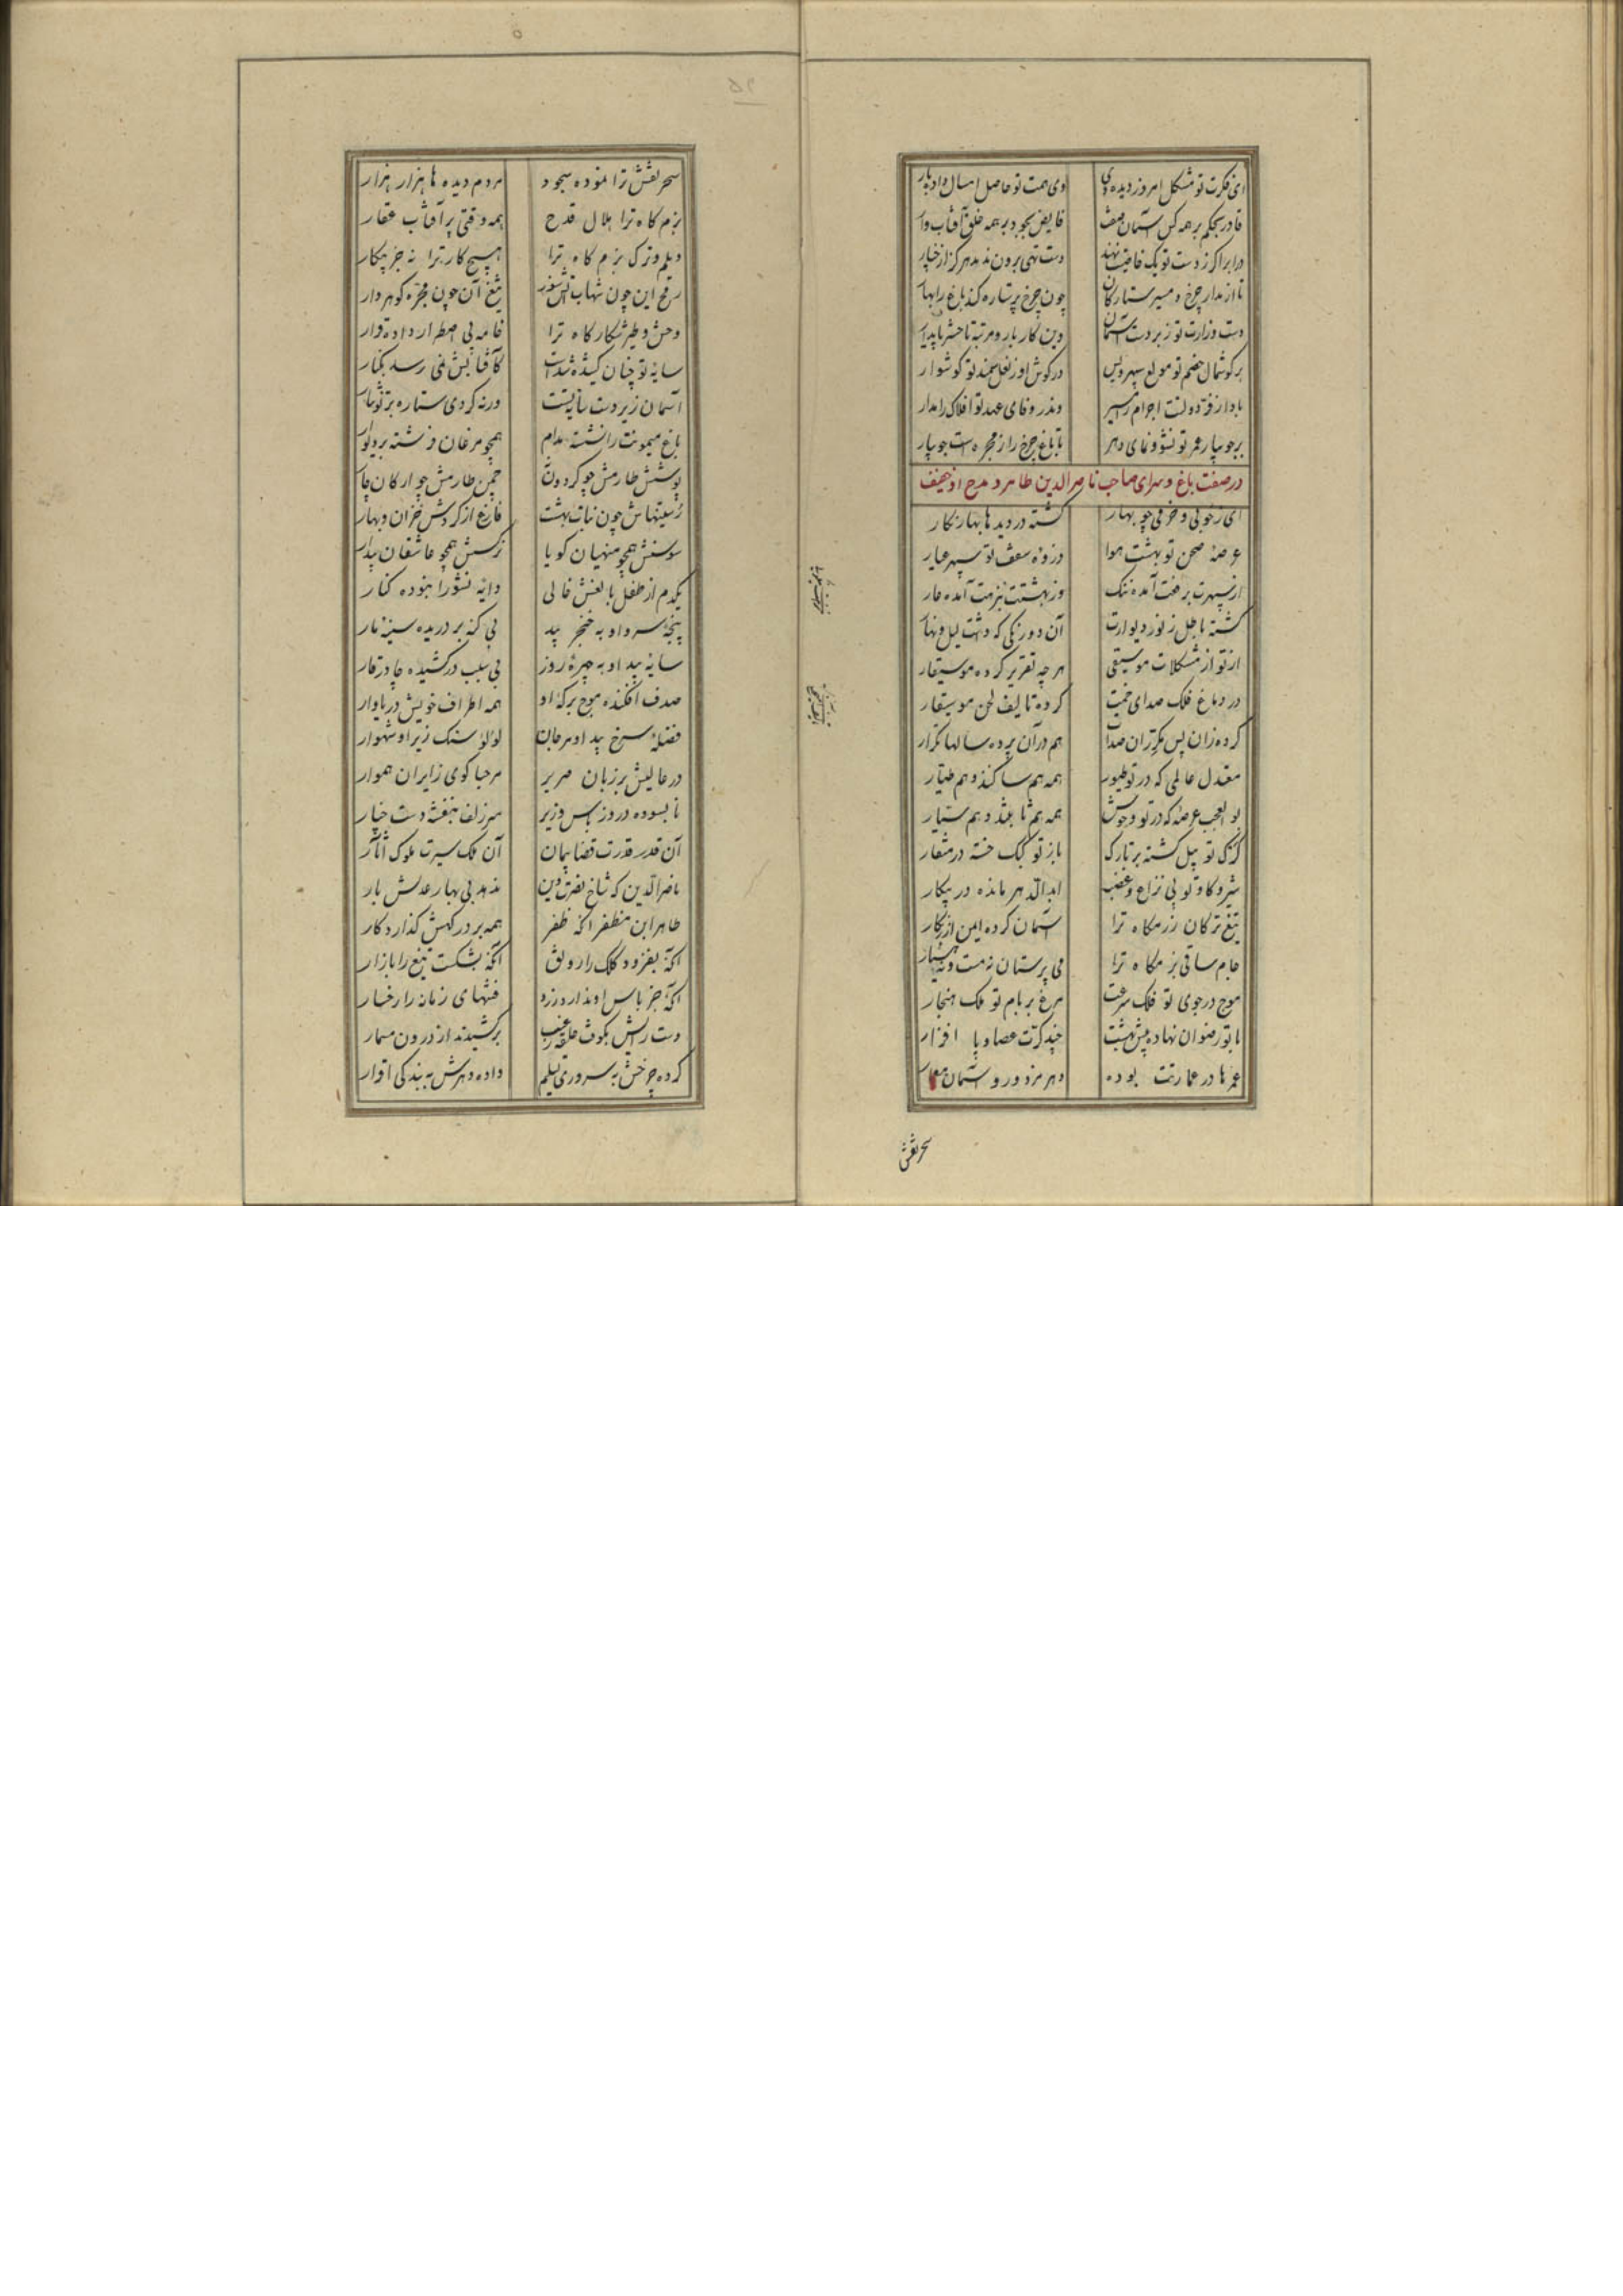 ای فکرت تو مشکل امروز دیده دی وی همت تو حاصل امسال داده پار
قادر بحکم بر همه کس آسمان صفت فایض بجود بر همه خلق آفتاب وار
در ابر اگر ز دست تو یک خاصیت نهند دست تهی برون ندمد هرگز از چنار
تا از مدار چرخ و مسیر ستارگان چون چرخ پر ستاره کند باغ را بهار
دست وزارت تو زبردست آسمان وین کار بار و مرتبه تا حشر پایدار
بر گوشمال خصم تو مولع سپهر و پس در گوش او ز نعل سمند تو گوشوار
بادا ز فر دولتت اجرام را مسیر وندر وفای عهد تو افلاک را مدار
بر جویبار عمر تو نشو و نمای دهر تا باغ چرخ را ز مجره است جویبار
در صفت باغ و سرای صاحب ناصرالدین طاهر و مدح او
ای ز خوبی و خرمی چو بهار گشته در دیدها بهار نگار
عرصهٔ صحن تو بهشت هوا ذروهٔ سقف تو سپهر عیار
از سپهرت برفعت آمده ننگ وز بهشتت بنزهت آمده عار
گشته باطل ز نور دیوارت آن دورنگی که داشت لیل و نهار
از تو از مشکلات موسیقی هر چه تقریر کرده موسیقار
در دماغ فلک صدای خمت کرده تالیف لحن موسیقار
کرده زان پس مکرر آن صدات هم در آن پرده سالها تکرار
معتدل عالمی که در تو طیور همه هم ساکنند و هم طیار
بوالعجب عرصهٔ که در تو وحوش همه هم ثابتند و هم سیار
کرگ تو پیل گشته بر تارک باز تو کبک خسته در منقار
شیر و گاو تو بی نزاع و غضب ابدالدهر مانده در پیکار
تیغ ترکان رزمگاه ترا آسمان کرده ایمن از زنگار
جام ساقی بزمگاه ترا می پرستان نه مست و نه هشیار
موج در جوی تو فلک سرعت مرغ بر بام تو ملک هنجار
با تو رضوان نهاده پیش بهشت چند کرت عصا و پا افزار
عمرها در عمارتت بوده دهر مزدور و آسمان معمار
سحر نقش
سحر نقش ترا نموده سجود مردم دیده‌ها هزار هزار
بزم گاه ترا هلال قدح همه وقتی پر آفتاب عقار
دیلم و ترک بزم گاه ترا هیچ کار ترا نه جز پیکار
رمح این چون شهاب آتش سوز تیغ آن چون مجره گوهردار
وحش و طیر شکارگاه ترا خامه بی اضطرار داده قرار
سایهٔ تو چنان کشیده شدست کافتابش نمی رسد بکنار
آسمان زیر دست پایهٔ تست ورنه کردی ستاره بر تو نثار
باغ میمونت را نشسته مدام همچو مرغان فرشته بر دیوار
پوشش طارمش چو گردون چمن طارمش چو ارکان چار
رستنیهاش چون نبات بهشت فارغ از گردش خزان و بهار
سوسنش همچو منهیان گویا نرگسش همچو عاشقان بیدار
یکدم از طفل و بالغش خالی دایهٔ نشو را نبوده کنار
پنجهٔ سرو او به خنجر بید بی گنه بر دریده سینهٔ نار
سایهٔ بید او به چهرهٔ روز بی سبب در کشیده چادر قار
صدف افکنده موج برکهٔ او همه اطراف خویش دریاوار
فضلهٔ سرخ بید او مرجان لؤلؤ سنگ زیر او شهوار
در عالیش بر زبان صریر مرحبا گوی زایران هموار
نابسوده درو ز بیم وزیر سر زلف بنفشه دست چنار
آن قدر قدرت قضا پیمان آن ملک سیرت ملوک آثار
ناصرالدین که شاخ نصرت و دین ندهد بی بهار عدلش بار
طاهر ابن مظفر آنکه ظفر همه بر درگهش گذارد کار
آنکه بفزود کلک را رونق آنکه بشکست تیغ را بازار
آنکه جز باس او ندارد زرد فتنهای زمانه را رخسار
دست رایش بکوفت حلقهٔ غیب برکشیدند از درون مسمار
کرده چرخش به سروری تسلیم داده دهرش به بندگی اقرار